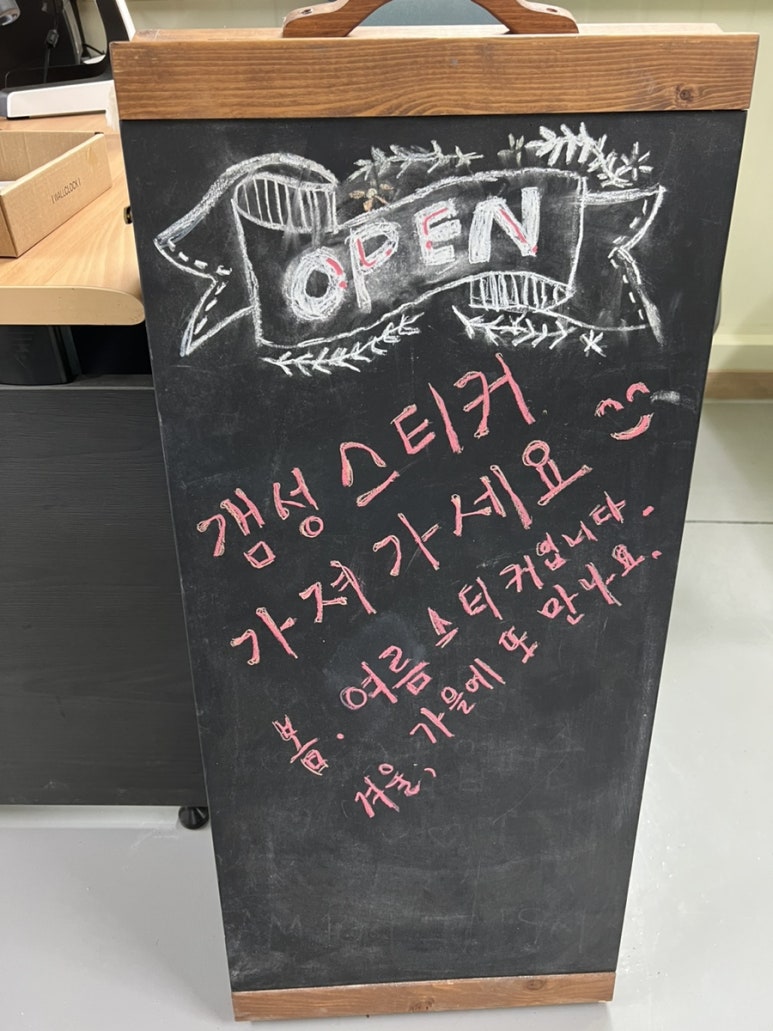 ( WALLCLOCK )
OPEN
갬성 스티커
가져 가세요
봄. 여름 스티커입니다.
겨울, 가을에 또 만나요.